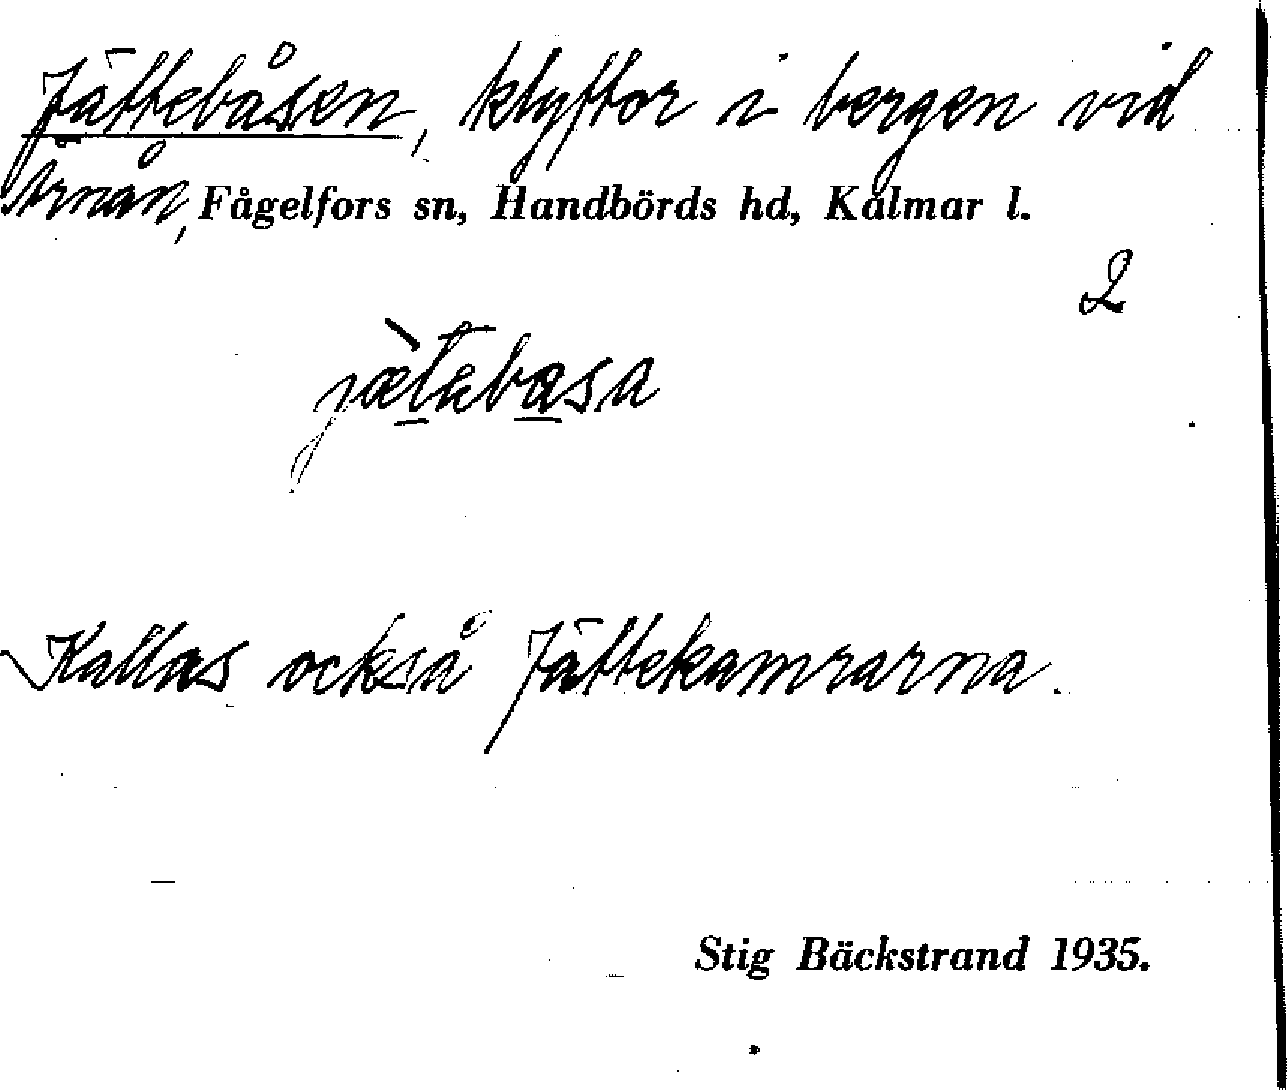 Jättebåsen, klyftor i bergen vid
Arnån, Fågelfors sn, Handbörds hd, Kalmar l.
2
jœ̀tebasa
Kallas också Jättekamrarna.
Stig Bäckstrand 1935.